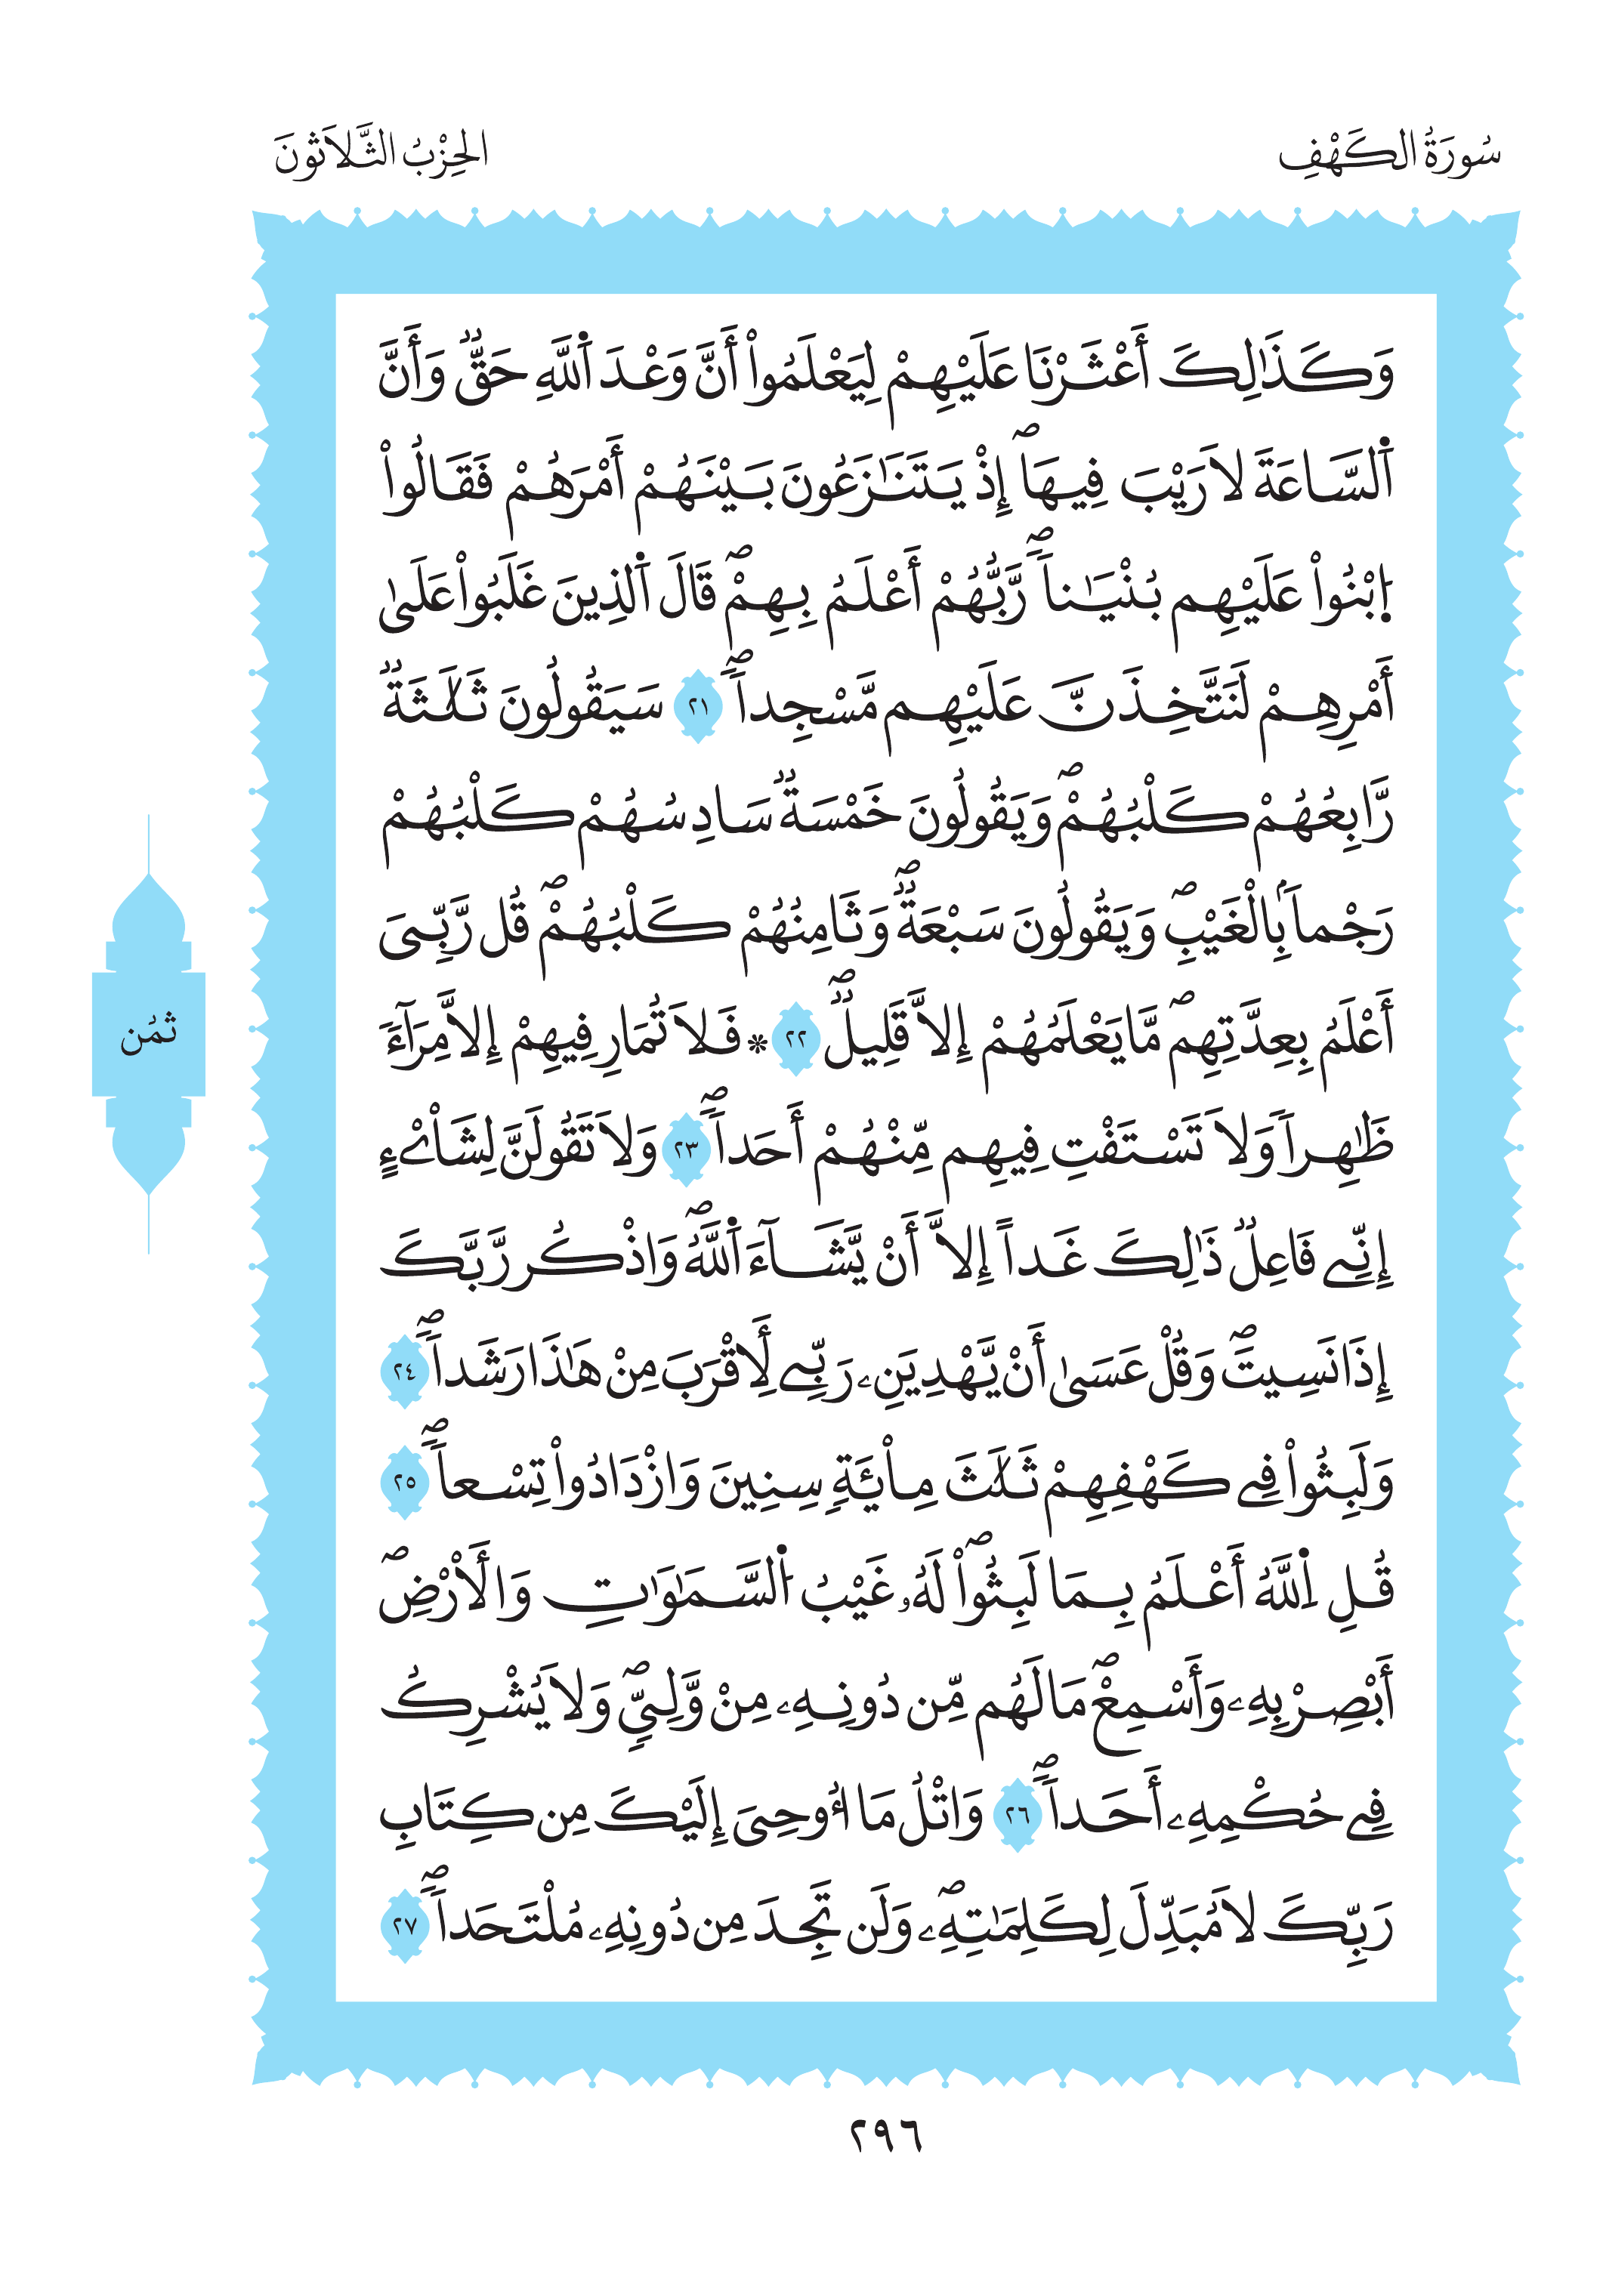 سُورَةُ الكَهْفِ
الحِزْبُ الثَّلاَثُونَ
وَكَذَٰلِكَ أَعْثَرْنَا عَلَيْهِمْ لِيَعْلَمُواْ أَنَّ وَعْدَ اَ۬للَّهِ حَقّٞ وَأَنَّ
اَ۬لسَّاعَةَ لَا رَيْبَ فِيهَاۖ إِذْ يَتَنَٰزَعُونَ بَيْنَهُمْ أَمْرَهُمْ فَقَالُواْ
اُ۪بْنُواْ عَلَيْهِم بُنْيَٰناٗۖ رَّبُّهُمْ أَعْلَمُ بِهِمْۖ قَالَ اَ۬لذِينَ غَلَبُواْ عَلَىٰ
أَمْرِهِمْ لَنَتَّخِذَنَّ عَلَيْهِم مَّسْجِداٗۖ ٢١ سَيَقُولُونَ ثَلَٰثَةٞ
رَّابِعُهُمْ كَلْبُهُمْۖ وَيَقُولُونَ خَمْسَةٞ سَادِسُهُمْ كَلْبُهُمْ
رَجْماَۢ بِالْغَيْبِۖ وَيَقُولُونَ سَبْعَةٞۖ وَثَامِنُهُمْ كَلْبُهُمْۖ قُل رَّبِّىَ
أَعْلَمُ بِعِدَّتِهِمۖ مَّا يَعْلَمُهُمْ إِلَّا قَلِيلٞۖ ٢٢ * فَلَا تُمَارِ فِيهِمْ إِلَّا مِرَآءٗ
ظَٰهِراٗ وَلَا تَسْتَفْتِ فِيهِم مِّنْهُمْ أَحَداٗۖ ٢٣ وَلَا تَقُولَنَّ لِشَاْےْءٍ
إِنِّے فَاعِلٞ ذَٰلِكَ غَداً إِلَّا أَنْ يَّشَآءَ اَ۬للَّهُۖ وَاذْكُر رَّبَّكَ
إِذَا نَسِيتَۖ وَقُلْ عَسَىٰ أَنْ يَّهْدِيَنِۦ رَبِّے لِأَقْرَبَ مِنْ هَٰذَا رَشَداٗۖ ٢٤
وَلَبِثُواْ فِے كَهْفِهِمْ ثَلَٰثَ مِاْئَةٖ سِنِينَ وَازْدَادُواْ تِسْعاٗۖ ٢٥
قُلِ اِ۬للَّهُ أَعْلَمُ بِمَا لَبِثُواْۖ لَهُۥ غَيْبُ اُ۬لسَّمَٰوَٰتِ وَالْأَرْضِۖ
أَبْصِرْ بِهِۦ وَأَسْمِعْۖ مَا لَهُم مِّن دُونِهِۦ مِنْ وَّلِيّٖۖ وَلَا يُشْرِكُ
فِے حُكْمِهِۦ أَحَداٗۖ ٢٦ وَاتْلُ مَا أُوحِىَ إِلَيْكَ مِن كِتَابِ
رَبِّكَ لَا مُبَدِّلَ لِكَلِمَٰتِهِۦۖ وَلَن تَجِدَ مِن دُونِهِۦ مُلْتَحَداٗۖ ٢٧
ثمُن
٢٩٦